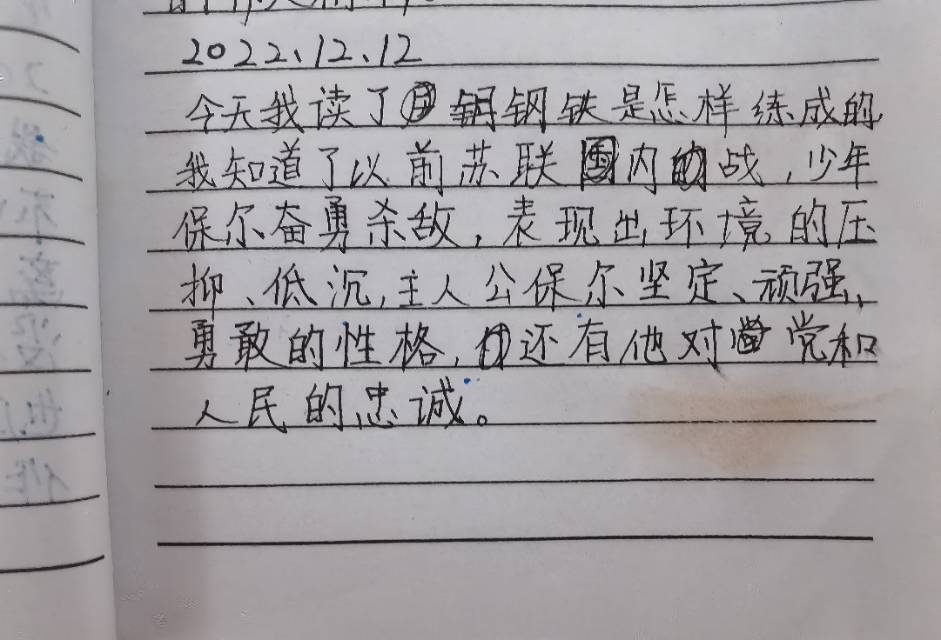 2022.12.12
今天我读了钢铁是怎样练成的
我知道了以前苏联国内战，少年
保尔奋勇杀敌，表现出环境的压
抑、低沉，主人公保尔坚定、顽强、
勇敢的性格，还有他对党和
人民的忠诚。